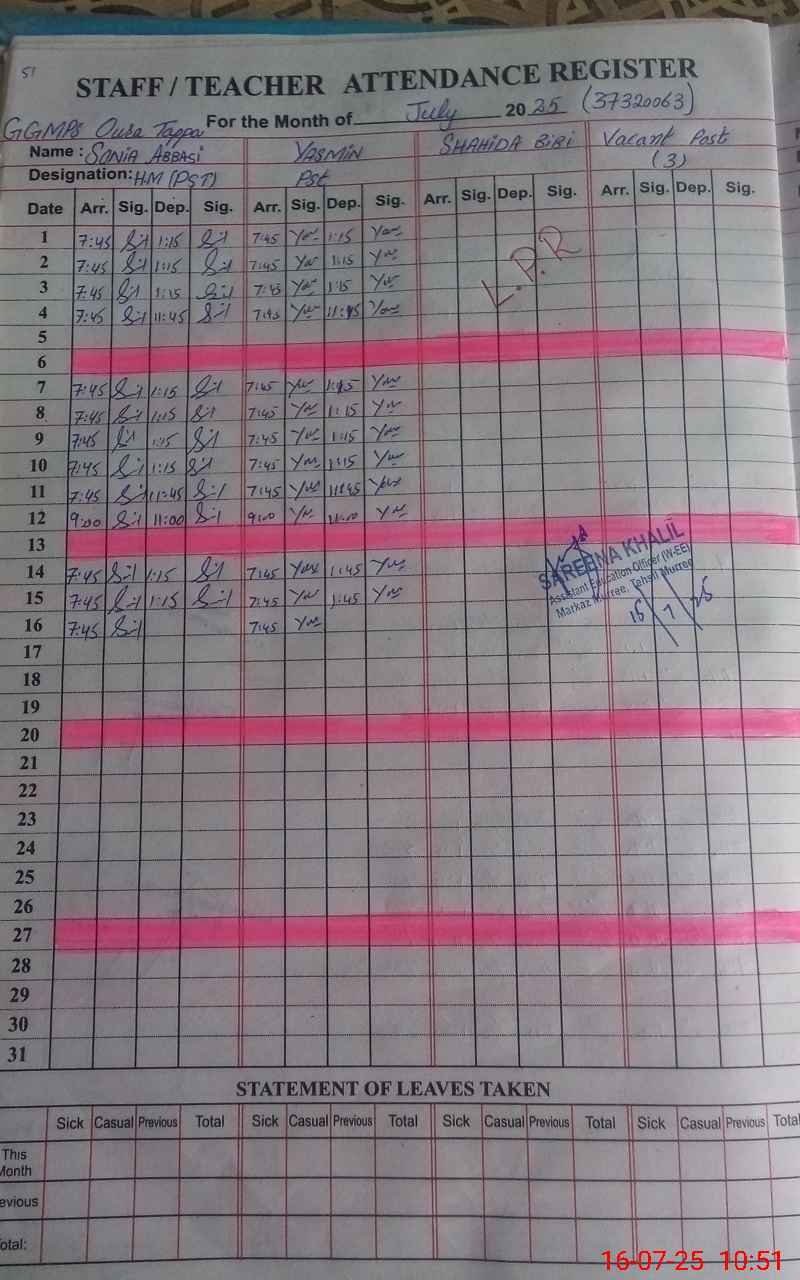 51
STAFF / TEACHER ATTENDANCE REGISTER
GGMPS Ousa Tappa For the Month of July 2025 (37320063)
Name : SONIA ABBASI YASMIN SHAHIDA BIBI Vacant Post
Designation: HM (PST) Pst (3)
Date Arr. Sig. Dep. Sig. Arr. Sig. Dep. Sig. Arr. Sig. Dep. Sig. Arr. Sig. Dep. Sig.
1 7:45 1:15 7:45 1:15
2 7:45 1:15 7:45 1:15
L.P.R
3 7:45 1:15 7:45 1:15
4 7:45 11:45 7:45 11:45
5
6
7 7:45 1:15 7:45 1:15
8 7:45 1:15 7:45 1:15
9 7:45 1:15 7:45 1:15
10 7:45 1:15 7:45 1:15
11 7:45 11:45 7:45 11:45
12 9:00 11:00 9:00 11:00
13
14 7:45 1:15 7:45 1:45
15 7:45 1:15 7:45 1:45
SAREENA KHALIL
Assistant Education Officer (W-EE)
Markaz Murree, Tehsil Murree
15/7/25
16 7:45 7:45
17
18
19
20
21
22
23
24
25
26
27
28
29
30
31
STATEMENT OF LEAVES TAKEN
Sick Casual Previous Total Sick Casual Previous Total Sick Casual Previous Total Sick Casual Previous Total
This
Month
evious
otal:
16-07-25 10:51